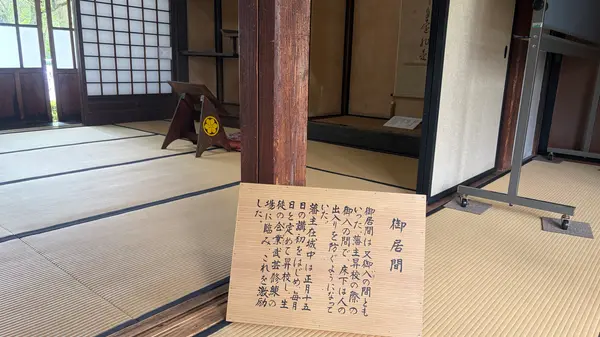 御居間
御居間は又御入の間とも
いった。藩主昇校の際の
御入の間で、床下は人の
出入りを防ぐようになって
いた。
藩主在城中は正月十五
日の講初をはじめ、毎月
日を定めて昇校し、生
徒の会業武芸修練の
場に臨み、これを激励
した。